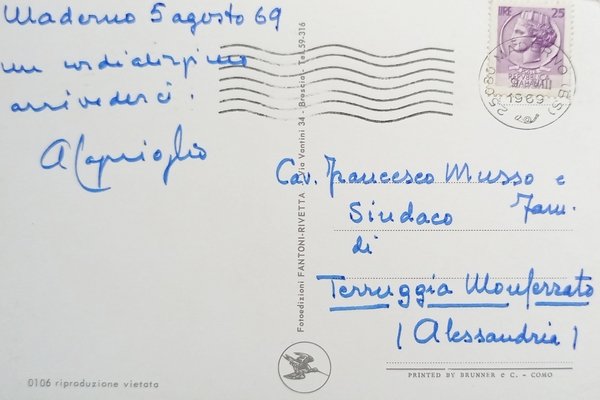 Maderno 5 agosto 69
un cordialissimo
arrivederci!
ACaprioglio
LIRE 25
1969
Fotoedizioni FANTONI-RIVETTA - Via Vantini 34 - Brescia - Tel. 59-316
Cav. Francesco Musso e
Fam.
Sindaco
di
Terruggia Monferrato
(Alessandria)
0106 riproduzione vietata
PRINTED BY BRUNNER e C. - COMO